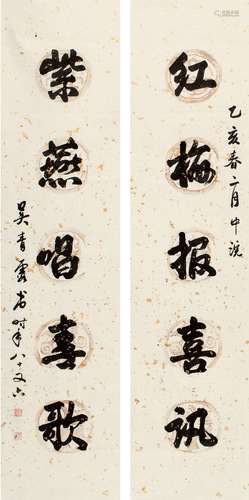 红梅报喜讯
乙亥春二月中浣
紫燕唱喜歌
吴青云书时年八十又六